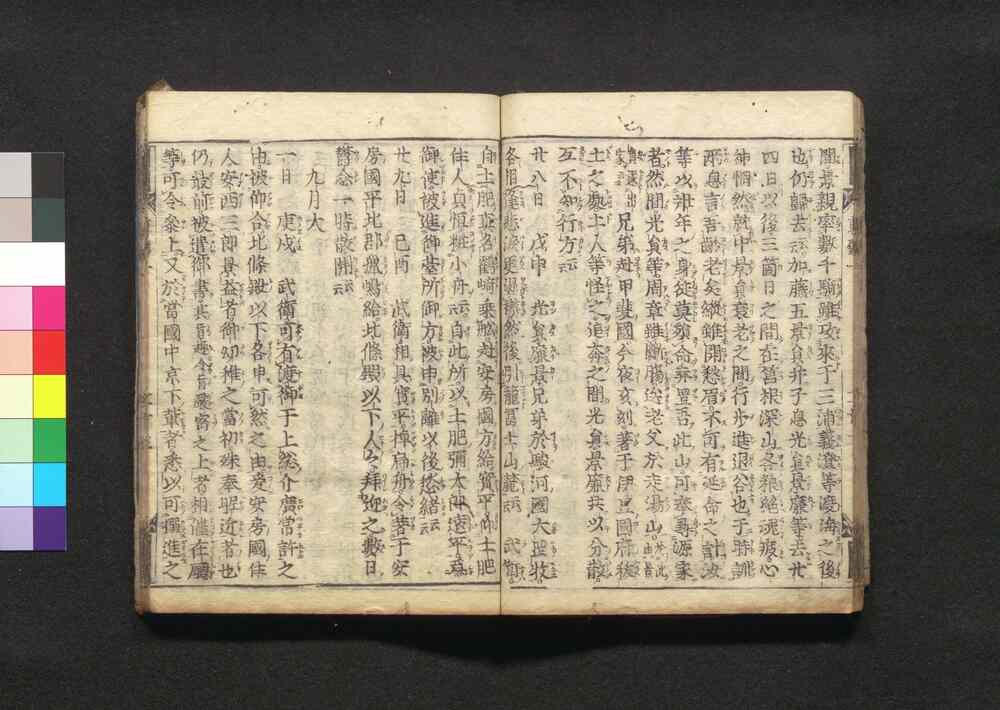 間景親率數千騎雖攻來于三浦義澄等渡海之後
也仍歸去云々加藤五景員并子息光員景廉等去廿
四日以後三箇日之間在筥根深山各粮絶魂疲心
神惘然就中景員衰老之間行歩進退谷也于時訓
兩息言吾齡老矣縱雖開愁眉不可有延命之計汝
等以壯年之身徒莫殞命弃置吾此山可奉尋源家
者然間光員等周章雖斷膓送老父於走湯山
兄弟赴甲斐國今夜亥刻著于伊豆國府祓
土之處土人等怪之追奔之間光員景廉共以分散
互不知行方云々
廿八日　戊申　光員景廉兄弟於駿河國大岡牧
各相逢悲涙更濕襟然後引籠冨士山麓云々　武衛
自土肥眞名鶴崎乘船赴安房國方給實平仰土肥
住人貞恒粧小舟云々自此所以土肥彌太郎遠平爲
御使被進御臺所御方被申別離以後愁緒云々
廿九日　己酉　武衛相具實平掉扁舟令著于安
房國平北郡獵嶋給北條殿以下人々拜迎之數日
欝念一時散開云々
九月大
一日　庚戌　武衛可有渡御于上総介廣常許之
由被仰合北條殿以下各申可然之由爰安房國住
人安西三郎景益者御幼稚之當初殊奉昵近者也
仍最前被遣御書其趣令旨嚴密之上者相催在廳
等可令參上又於當國中京下輩者悉以可搦進之